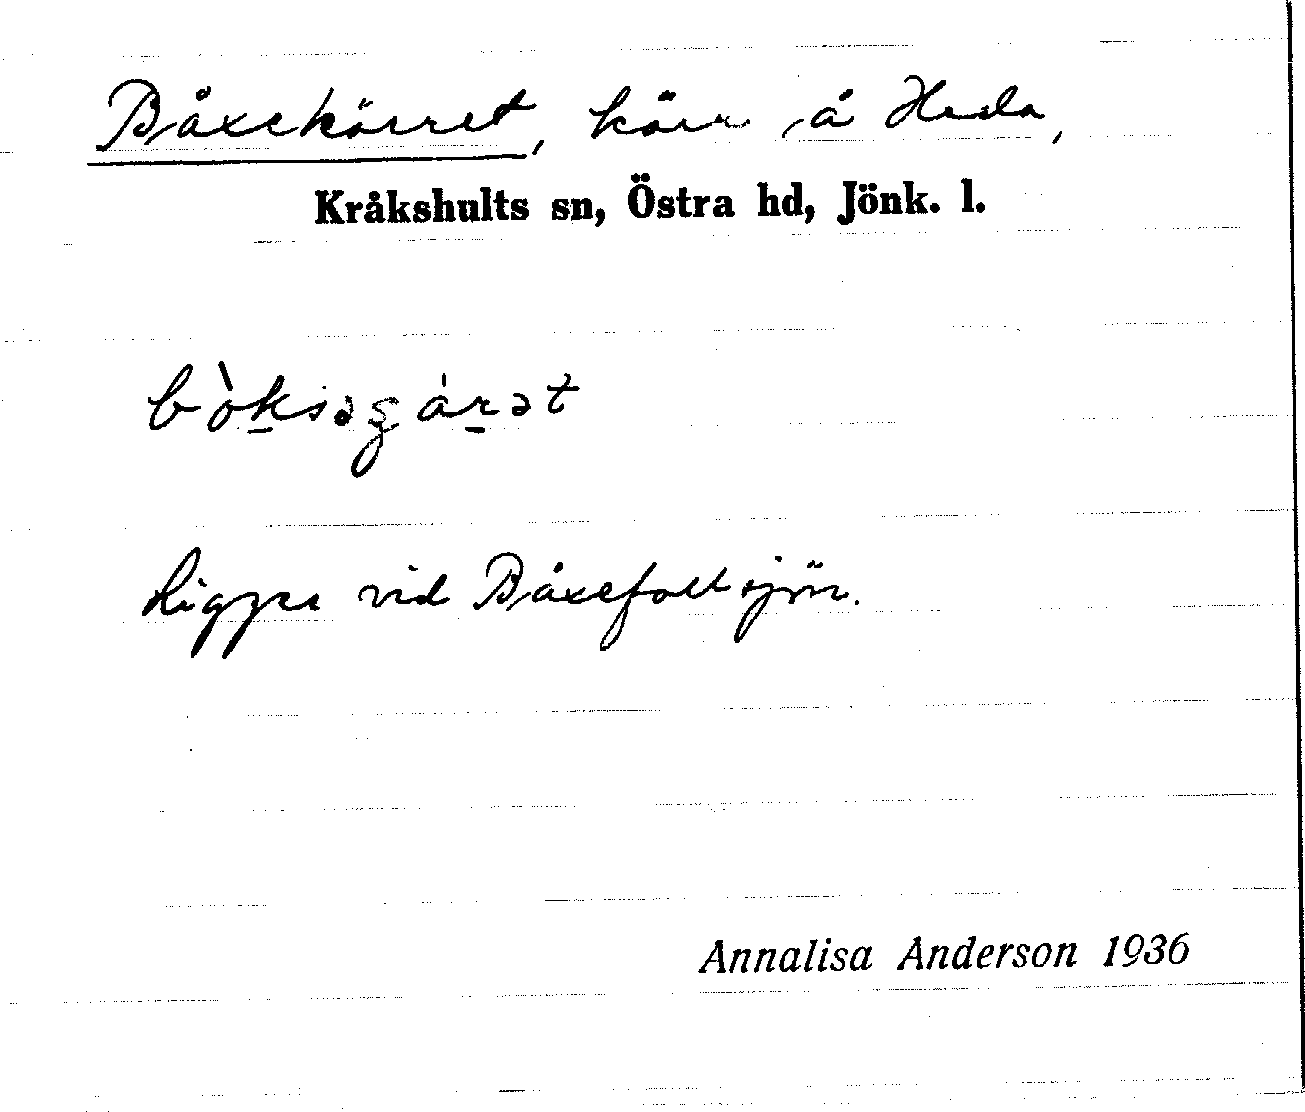 Båxekärret, kärr å Heda,
Kråkshults sn, Östra hd, Jönk. l.
bòksəʒárət
Ligger vid Båxefallsjön.
Annalisa Anderson 1936